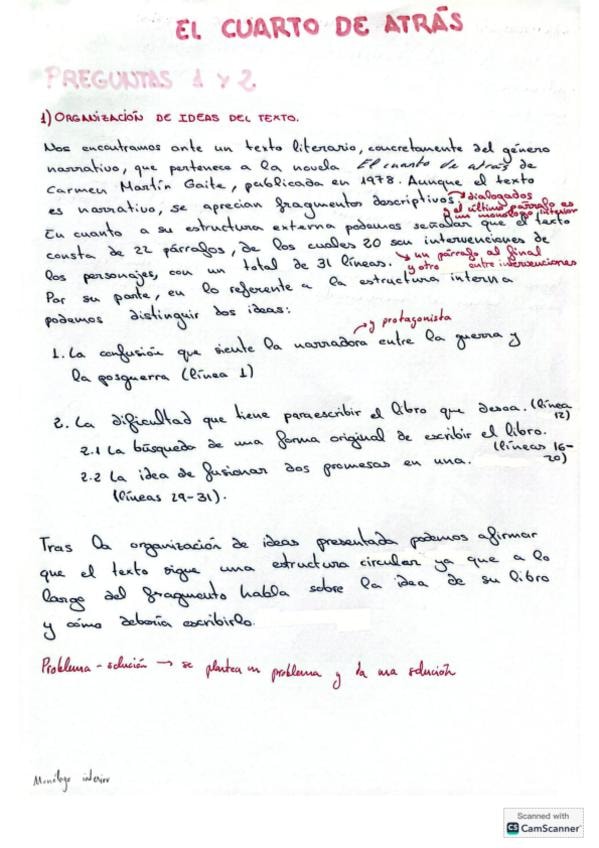 EL CUARTO DE ATRÁS
PREGUNTAS 1 Y 2
1) ORGANIZACIÓN DE IDEAS DEL TEXTO.
Nos encontramos ante un texto literario, concretamente del género
narrativo, que pertenece a la novela El cuarto de atrás de
Carmen Martín Gaite, publicada en 1978. Aunque el texto
es narrativo, se aprecian fragmentos descriptivos. → dialogados
y el último párrafo es
un monólogo interior
En cuanto a su estructura externa podemos señalar que el texto
consta de 22 párrafos, de los cuales 20 son intervenciones de
los personajes, con un total de 31 líneas. → un párrafo al final
y otro entre intervenciones
Por su parte, en lo referente a la estructura interna
podemos distinguir dos ideas:
→ y protagonista
1. La confusión que siente la narradora entre la guerra y
la posguerra (línea 1)
2. La dificultad que tiene para escribir el libro que desea. (línea
12)
2.1 La búsqueda de una forma original de escribir el libro.
(líneas 16-
20)
2.2 La idea de fusionar dos promesas en una.
(líneas 29-31).
Tras la organización de ideas presentada podemos afirmar
que el texto sigue una estructura circular ya que a lo
largo del fragmento habla sobre la idea de su libro
y cómo debería escribirlo.
Problema - solución → se plantea un problema y da una solución
Monólogo interior
Scanned with
CS CamScanner